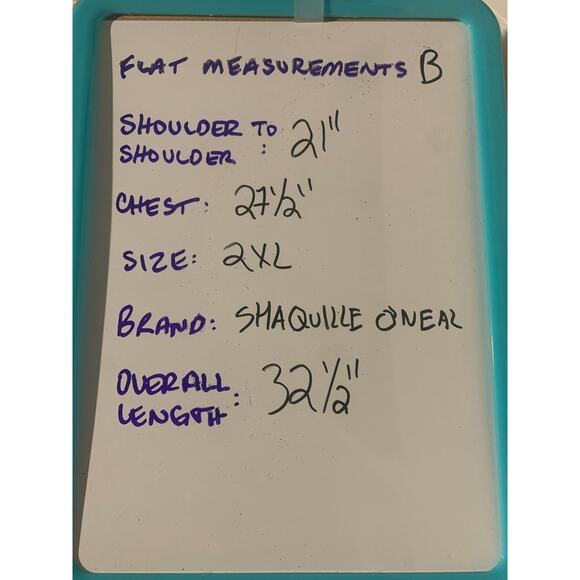 FLAT MEASUREMENTS B
SHOULDER TO
SHOULDER : 21"
CHEST: 27 1/2"
SIZE: 2XL
BRAND: SHAQUILLE O'NEAL
OVERALL
LENGTH : 32 1/2"